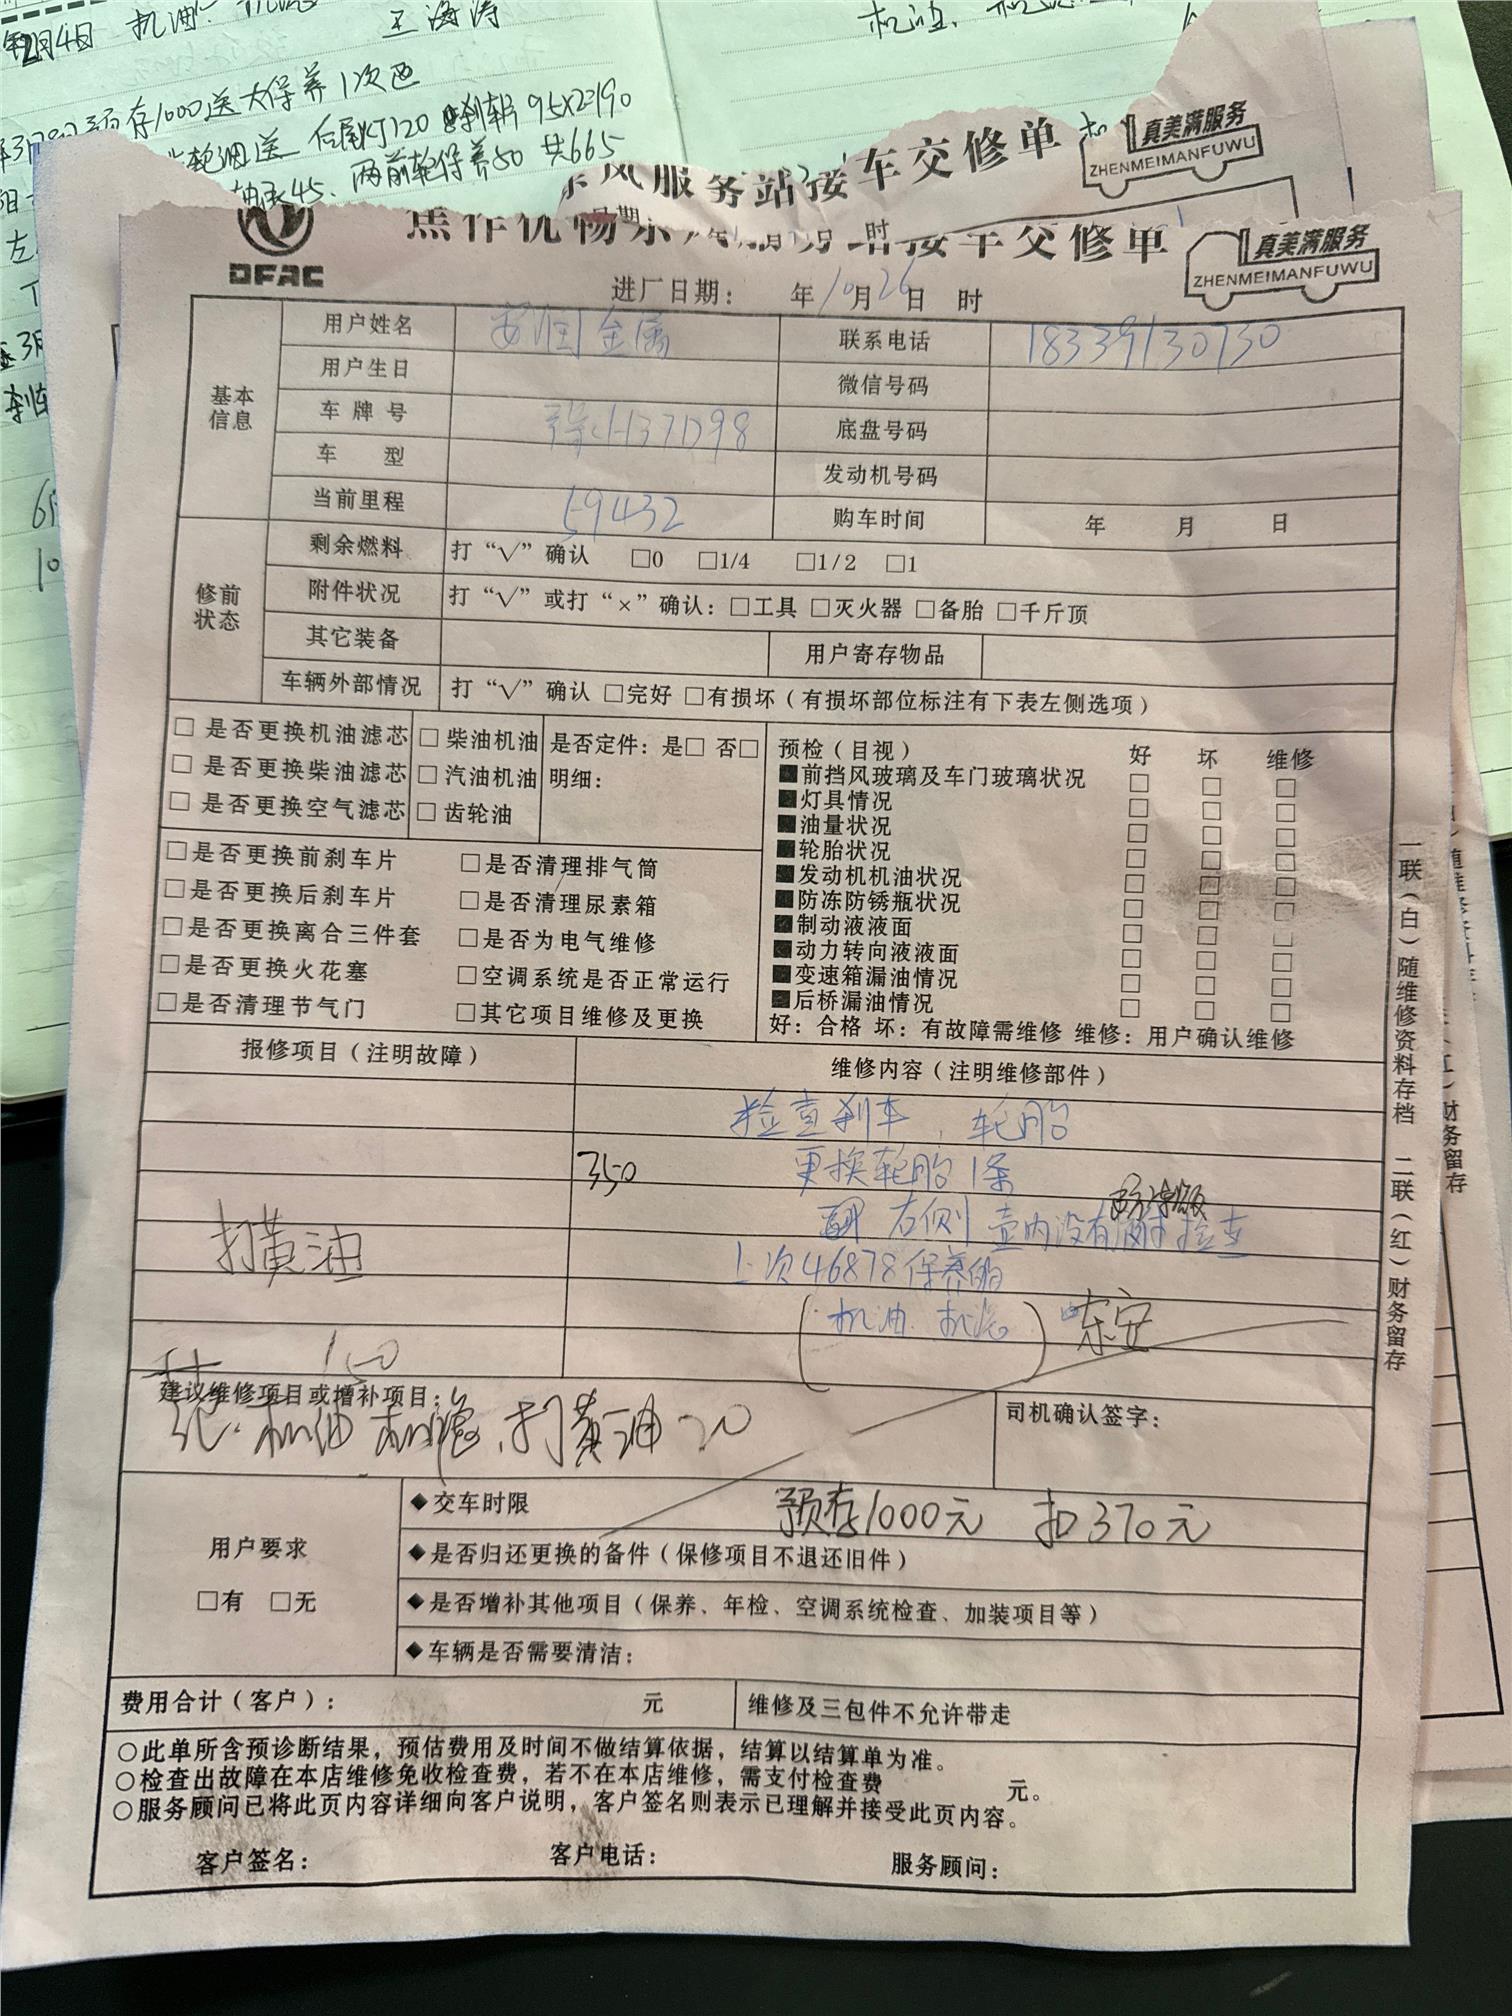 2月4日 机油
王海涛
预存1000送大保养1次
后尾灯120 刹车片 95X2=190
轴承45、两前轮保养50 共665
东风服务站接车交修单
真美满服务
ZHENMEIMANFUWU
焦作优畅东风服务站接车交修单
真美满服务
ZHENMEIMANFUWU
DFAC
进厂日期: 年10月26日 时
基本信息
用户姓名 金属 联系电话 18339130730
用户生日 微信号码
车牌号 底盘号码
车 型 发动机号码
当前里程 59432 购车时间 年 月 日
修前状态
剩余燃料 打“√”确认 □0 □1/4 □1/2 □1
附件状况 打“√”或打“×”确认:□工具 □灭火器 □备胎 □千斤顶
其它装备 用户寄存物品
车辆外部情况 打“√”确认 □完好 □有损坏(有损坏部位标注有下表左侧选项)
□ 是否更换机油滤芯 □ 柴油机油 是否定件: 是□ 否□
□ 是否更换柴油滤芯 □ 汽油机油 明细:
□ 是否更换空气滤芯 □ 齿轮油
□是否更换前刹车片 □是否清理排气筒
□是否更换后刹车片 □是否清理尿素箱
□是否更换离合三件套 □是否为电气维修
□是否更换火花塞 □空调系统是否正常运行
□是否清理节气门 □其它项目维修及更换
预检(目视) 好 坏 维修
■前挡风玻璃及车门玻璃状况 □ □ □
■灯具情况 □ □ □
■油量状况 □ □ □
■轮胎状况 □ □ □
■发动机机油状况 □ □ □
■防冻防锈瓶状况 □ □ □
■制动液液面 □ □ □
■动力转向液液面 □ □ □
■变速箱漏油情况 □ □ □
■后桥漏油情况 □ □ □
好: 合格 坏: 有故障需维修 维修: 用户确认维修
报修项目(注明故障) 维修内容(注明维修部件)
检查刹车, 轮胎
350 更换轮胎1条
右侧 壶内没有 检查
打黄油 上次46878保养的
(机油. 机滤) 东安
150
建议维修项目或增补项目:
机油 机滤、打黄油20
司机确认签字:
用户要求
□有 □无
◆交车时限 预存1000元 扣370元
◆是否归还更换的备件(保修项目不退还旧件)
◆是否增补其他项目(保养、年检、空调系统检查、加装项目等)
◆车辆是否需要清洁:
费用合计(客户): 元 维修及三包件不允许带走
○此单所含预诊断结果,预估费用及时间不做结算依据,结算以结算单为准。
○检查出故障在本店维修免收检查费,若不在本店维修,需支付检查费 元。
○服务顾问已将此页内容详细向客户说明,客户签名则表示已理解并接受此页内容。
客户签名: 客户电话: 服务顾问:
一联(白)随维修资料存档 二联(红)财务留存